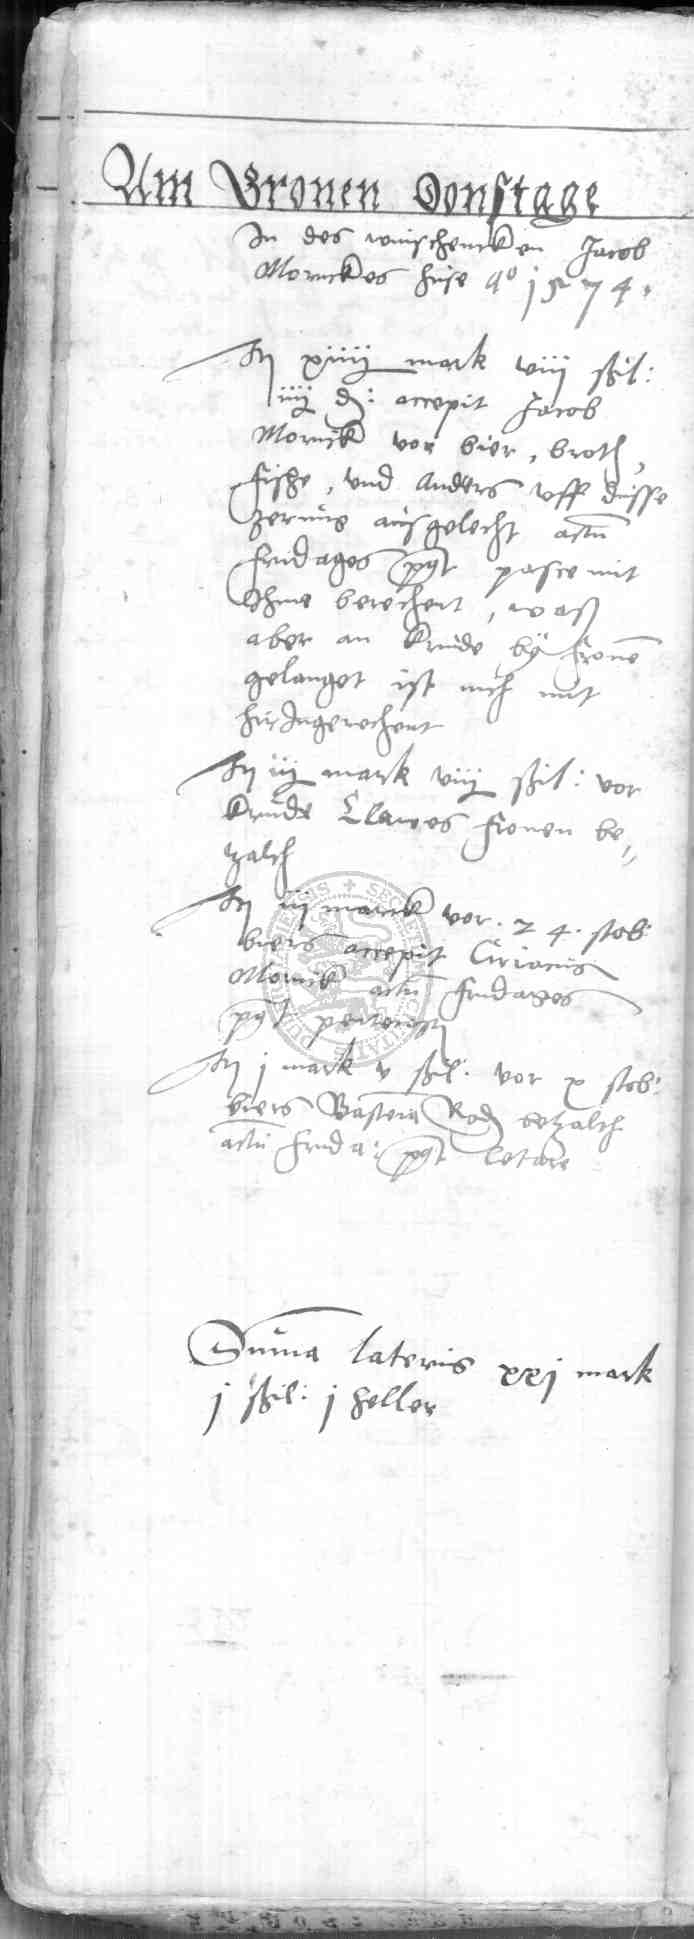 Am Gronen Donstage
In des winschencken Jacob
Mornckes huse Aº 1574.
It xiiij mark viij ßil:
iiij d: accepit Jacob
Mornick vor bier, broth,
fishe, vnd Anders vff dusse
zerung ausgelecht actu
fridages post pasce mit
Ihme berechent, waß
aber an krude by fronen
gelanget ist nich mit
hir Ingerechent
It iij mark viij ßil: vor
krude Clawes fronen be-
zalth
It iij marck vor . 24 . stob
biers accepit Ciriacus
Mornick actu fridages
post
It j mark v ßil: vor x stob:
biers Bastein Rod betzalth
actu frida: post letare
Suma lateris xxj mark
j ßil: j heller